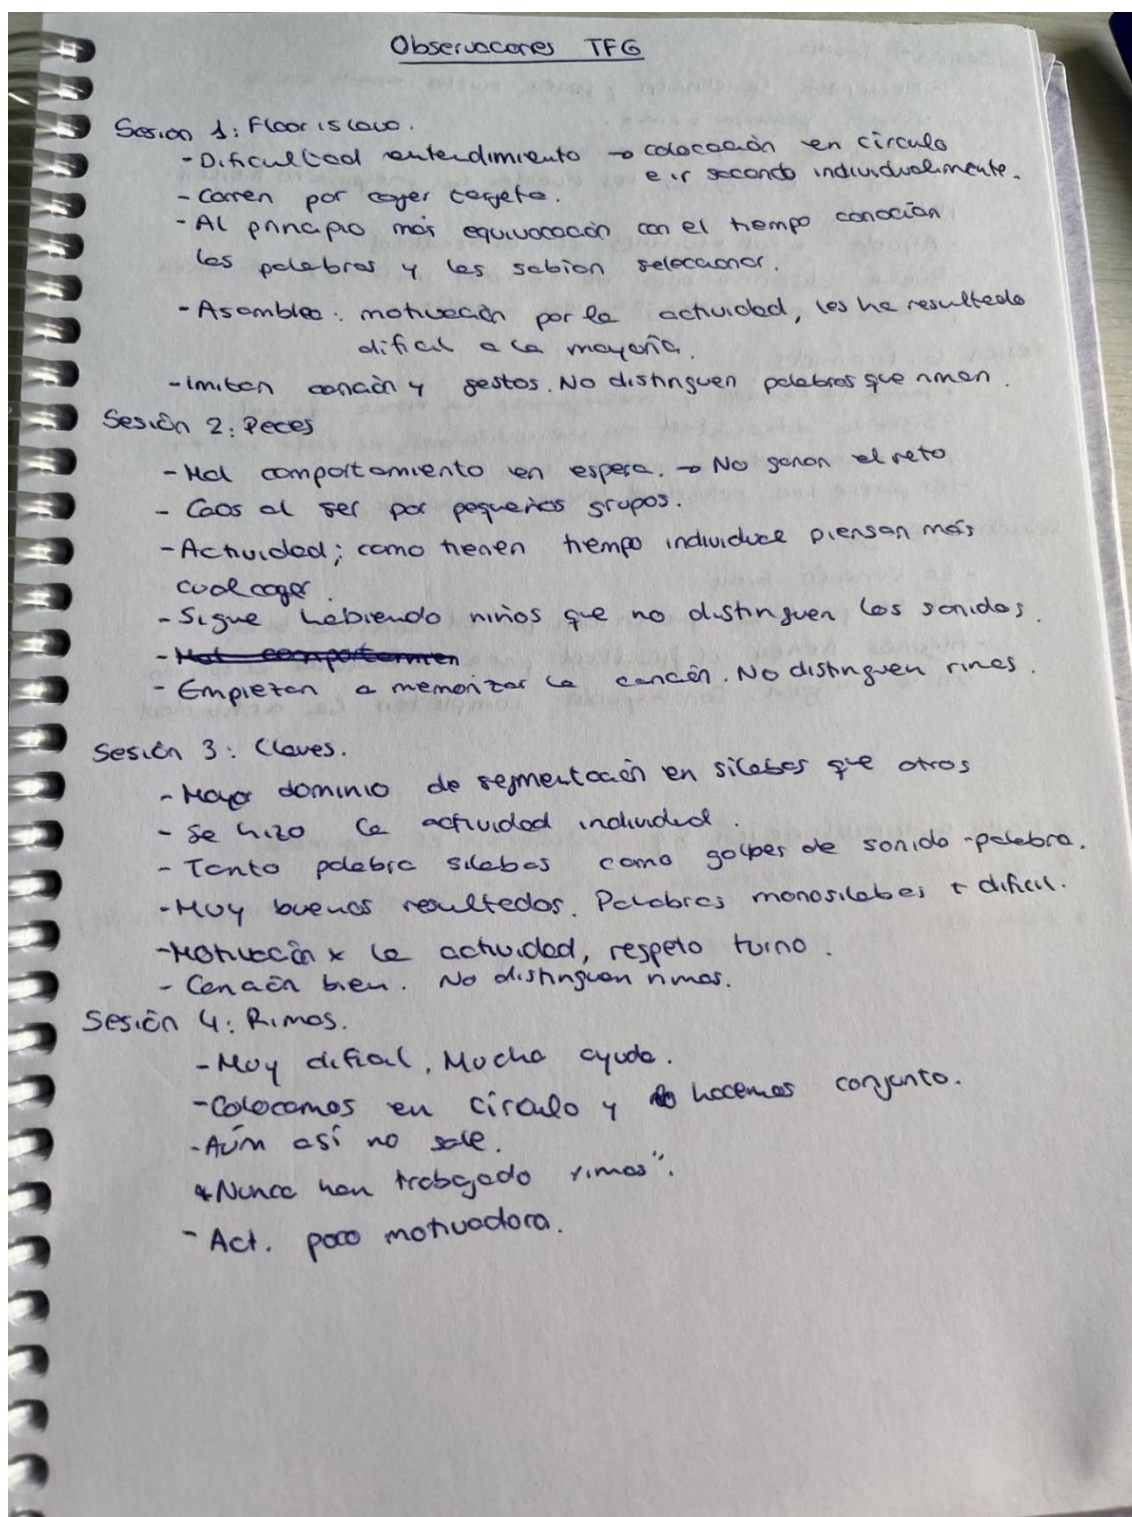 Observaciones TFG
Sesión 1: Floor is lava.
- Dificultad entendimiento → colocación en círculo
e ir sacando individualmente.
- Corren por coger tarjeta.
- Al principio más equivocación con el tiempo conocían
las palabras y las sabían seleccionar.
- Asamblea: motivación por la actividad, les ha resultado
difícil a la mayoría.
- imitan canción y gestos. No distinguen palabras que riman.
Sesión 2: Peces
- Mal comportamiento en espera. → No ganan el reto
- Caos al ser por pequeños grupos.
- Actividad; como tienen tiempo individual piensan más
cual coger.
- Sigue habiendo niños que no distinguen los sonidos.
- Mal comportamien
- Empiezan a memorizar la canción. No distinguen rimas.
Sesión 3: Claves.
- Mayor dominio de segmentación en sílabas que otros
- Se hizo la actividad individual.
- Tanto palabra sílabas como golpes de sonido - palabra.
- Muy buenos resultados. Palabras monosílabas + difícil.
- Motivación x la actividad, respeto turno.
- Canción bien. No distinguen rimas.
Sesión 4: Rimas.
- Muy difícil. Mucha ayuda.
- Colocamos en círculo y hacemos conjunto.
- Aún así no sale.
* Nunca han trabajado rimas".
- Act. poco motivadora.